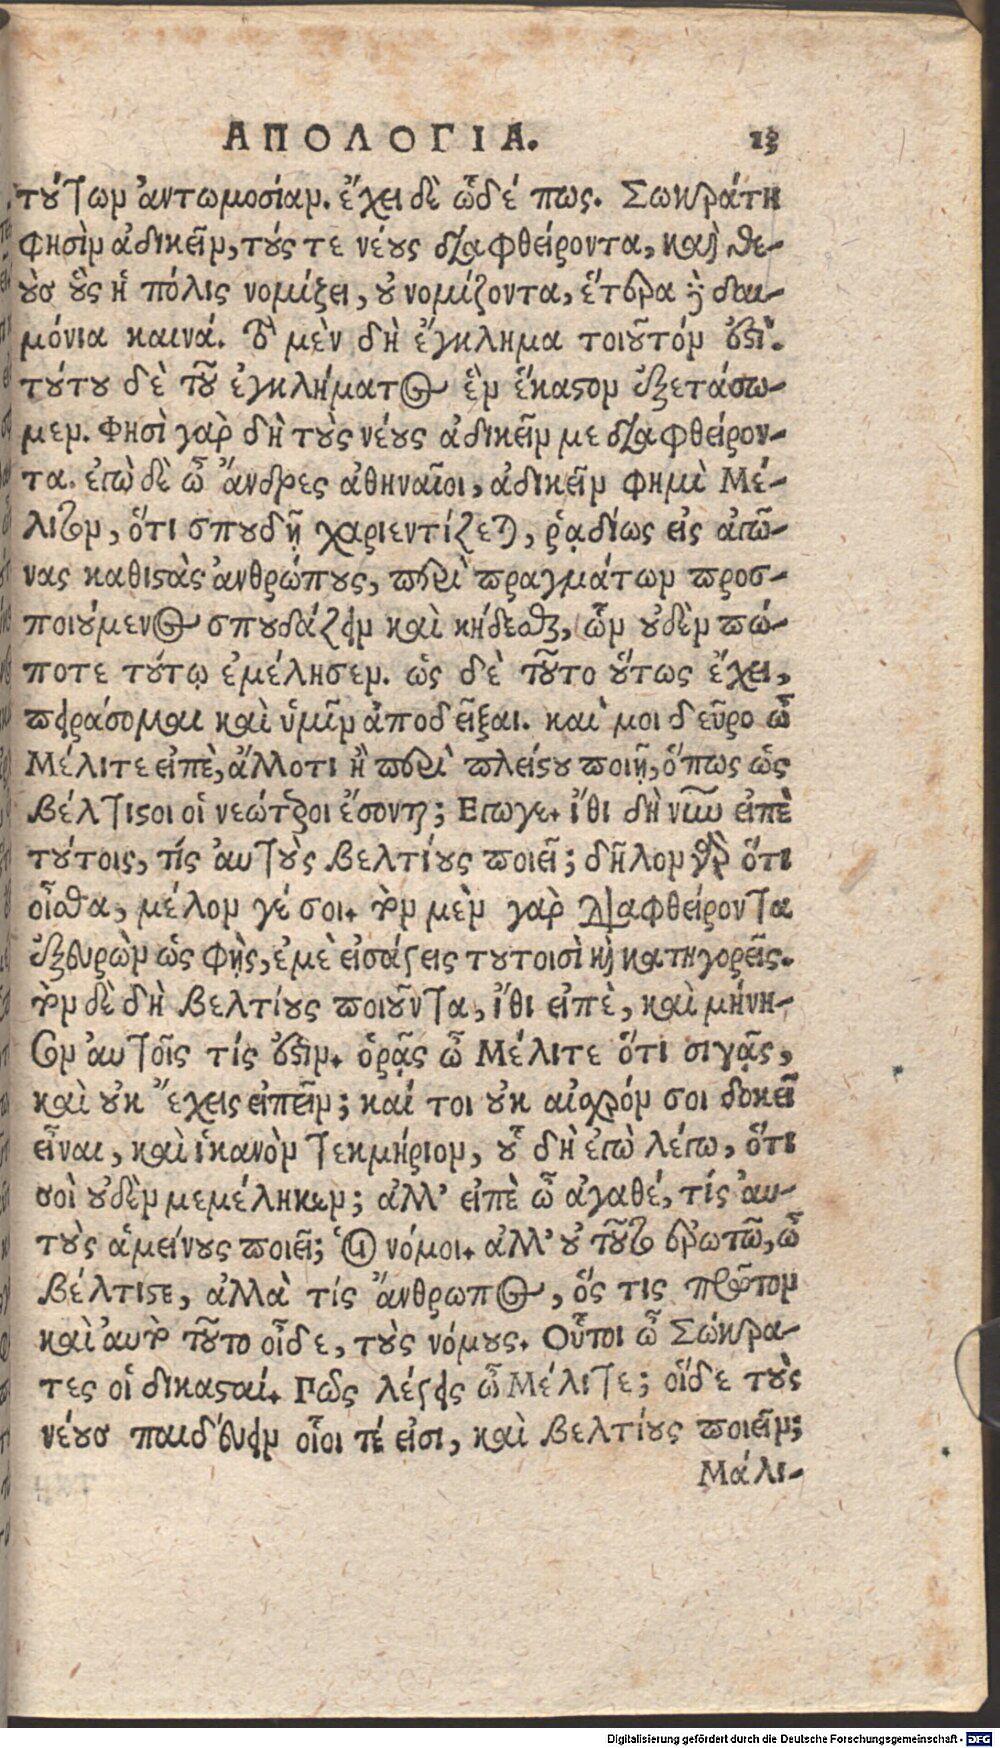 ΑΠΟΛΟΓΙΑ. 13
τούτων ἀντωμοσίαν. ἔχει δὲ ὧδέ πως. Σωκράτη
φησὶν ἀδικεῖν, τούς τε νέους διαφθείροντα, καὶ θε-
οὺσ οὓς ἡ πόλις νομίζει, οὐ νομίζοντα, ἕτερα δὲ δαι-
μόνια καινά. τὸ μὲν δὴ ἔγκλημα τοιοῦτόν ἐστι.
τούτου δὲ τοῦ ἐγκλήματος ἓν ἕκαστον ἐξετάσω-
μεν. Φησὶ γὰρ δὴ τοὺς νέους ἀδικεῖν με διαφθείρον-
τα. ἐγὼ δὲ ὦ ἄνδρες ἀθηναῖοι, ἀδικεῖν φημὶ Μέ-
λιτον, ὅτι σπουδῇ χαριεντίζεται, ῥᾳδίως εἰς ἀγῶ-
νας καθιστὰς ἀνθρώπους, περὶ πραγμάτων προσ-
ποιούμενος σπουδάζειν καὶ κήδεσθαι, ὧν οὐδὲν πώ-
ποτε τούτῳ ἐμέλησεν. ὡς δὲ τοῦτο οὕτως ἔχει,
πειράσομαι καὶ ὑμῖν ἀποδεῖξαι. καί μοι δεῦρο ὦ
Μέλιτε εἰπὲ, ἄλλοτι ἢ περὶ πλείστου ποιῇ, ὅπως ὡς
βέλτιστοι οἱ νεώτεροι ἔσονται; Εγωγε. ἴθι δὴ νῦν εἰπὲ
τούτοις, τίς αὐτοὺς βελτίους ποιεῖ; δῆλον γὰρ ὅτι
οἶσθα, μέλον γέ σοι. τὸν μὲν γὰρ διαφθείροντα
ἐξευρὼν ὡς φῂς, ἐμὲ εἰσάγεις τουτοισὶ καὶ κατηγορεῖς.
τὸν δὲ δὴ βελτίους ποιοῦντα, ἴθι εἰπὲ, καὶ μήνυ-
σον αὐτοῖς τίς ἐστιν. ὁρᾷς ὦ Μέλιτε ὅτι σιγᾷς,
καὶ οὐκ ἔχεις εἰπεῖν; καί τοι οὐκ αἰσχρόν σοι δοκεῖ
εἶναι, καὶ ἱκανὸν τεκμήριον, οὗ δὴ ἐγὼ λέγω, ὅτι
σοὶ οὐδὲν μεμέληκεν; ἀλλ' εἰπὲ ὦ ἀγαθέ, τίς αὐ-
τοὺς ἀμείνους ποιεῖ; Οἱ νόμοι. ἀλλ' οὐ τοῦτο ἐρωτῶ, ὦ
βέλτιστε, ἀλλὰ τίς ἄνθρωπος, ὅς τις πρῶτον
καὶ αὐτὸ τοῦτο οἶδε, τοὺς νόμους. Οὗτοι ὦ Σώκρα-
τες οἱ δικασταί. Πῶς λέγεις ὦ Μέλιτε; οἵδε τοὺς
νέουσ παιδεύειν οἷοι τέ εἰσι, καὶ βελτίους ποιεῖν;
Μάλι-
Digitalisierung gefördert durch die Deutsche Forschungsgemeinschaft - DFG